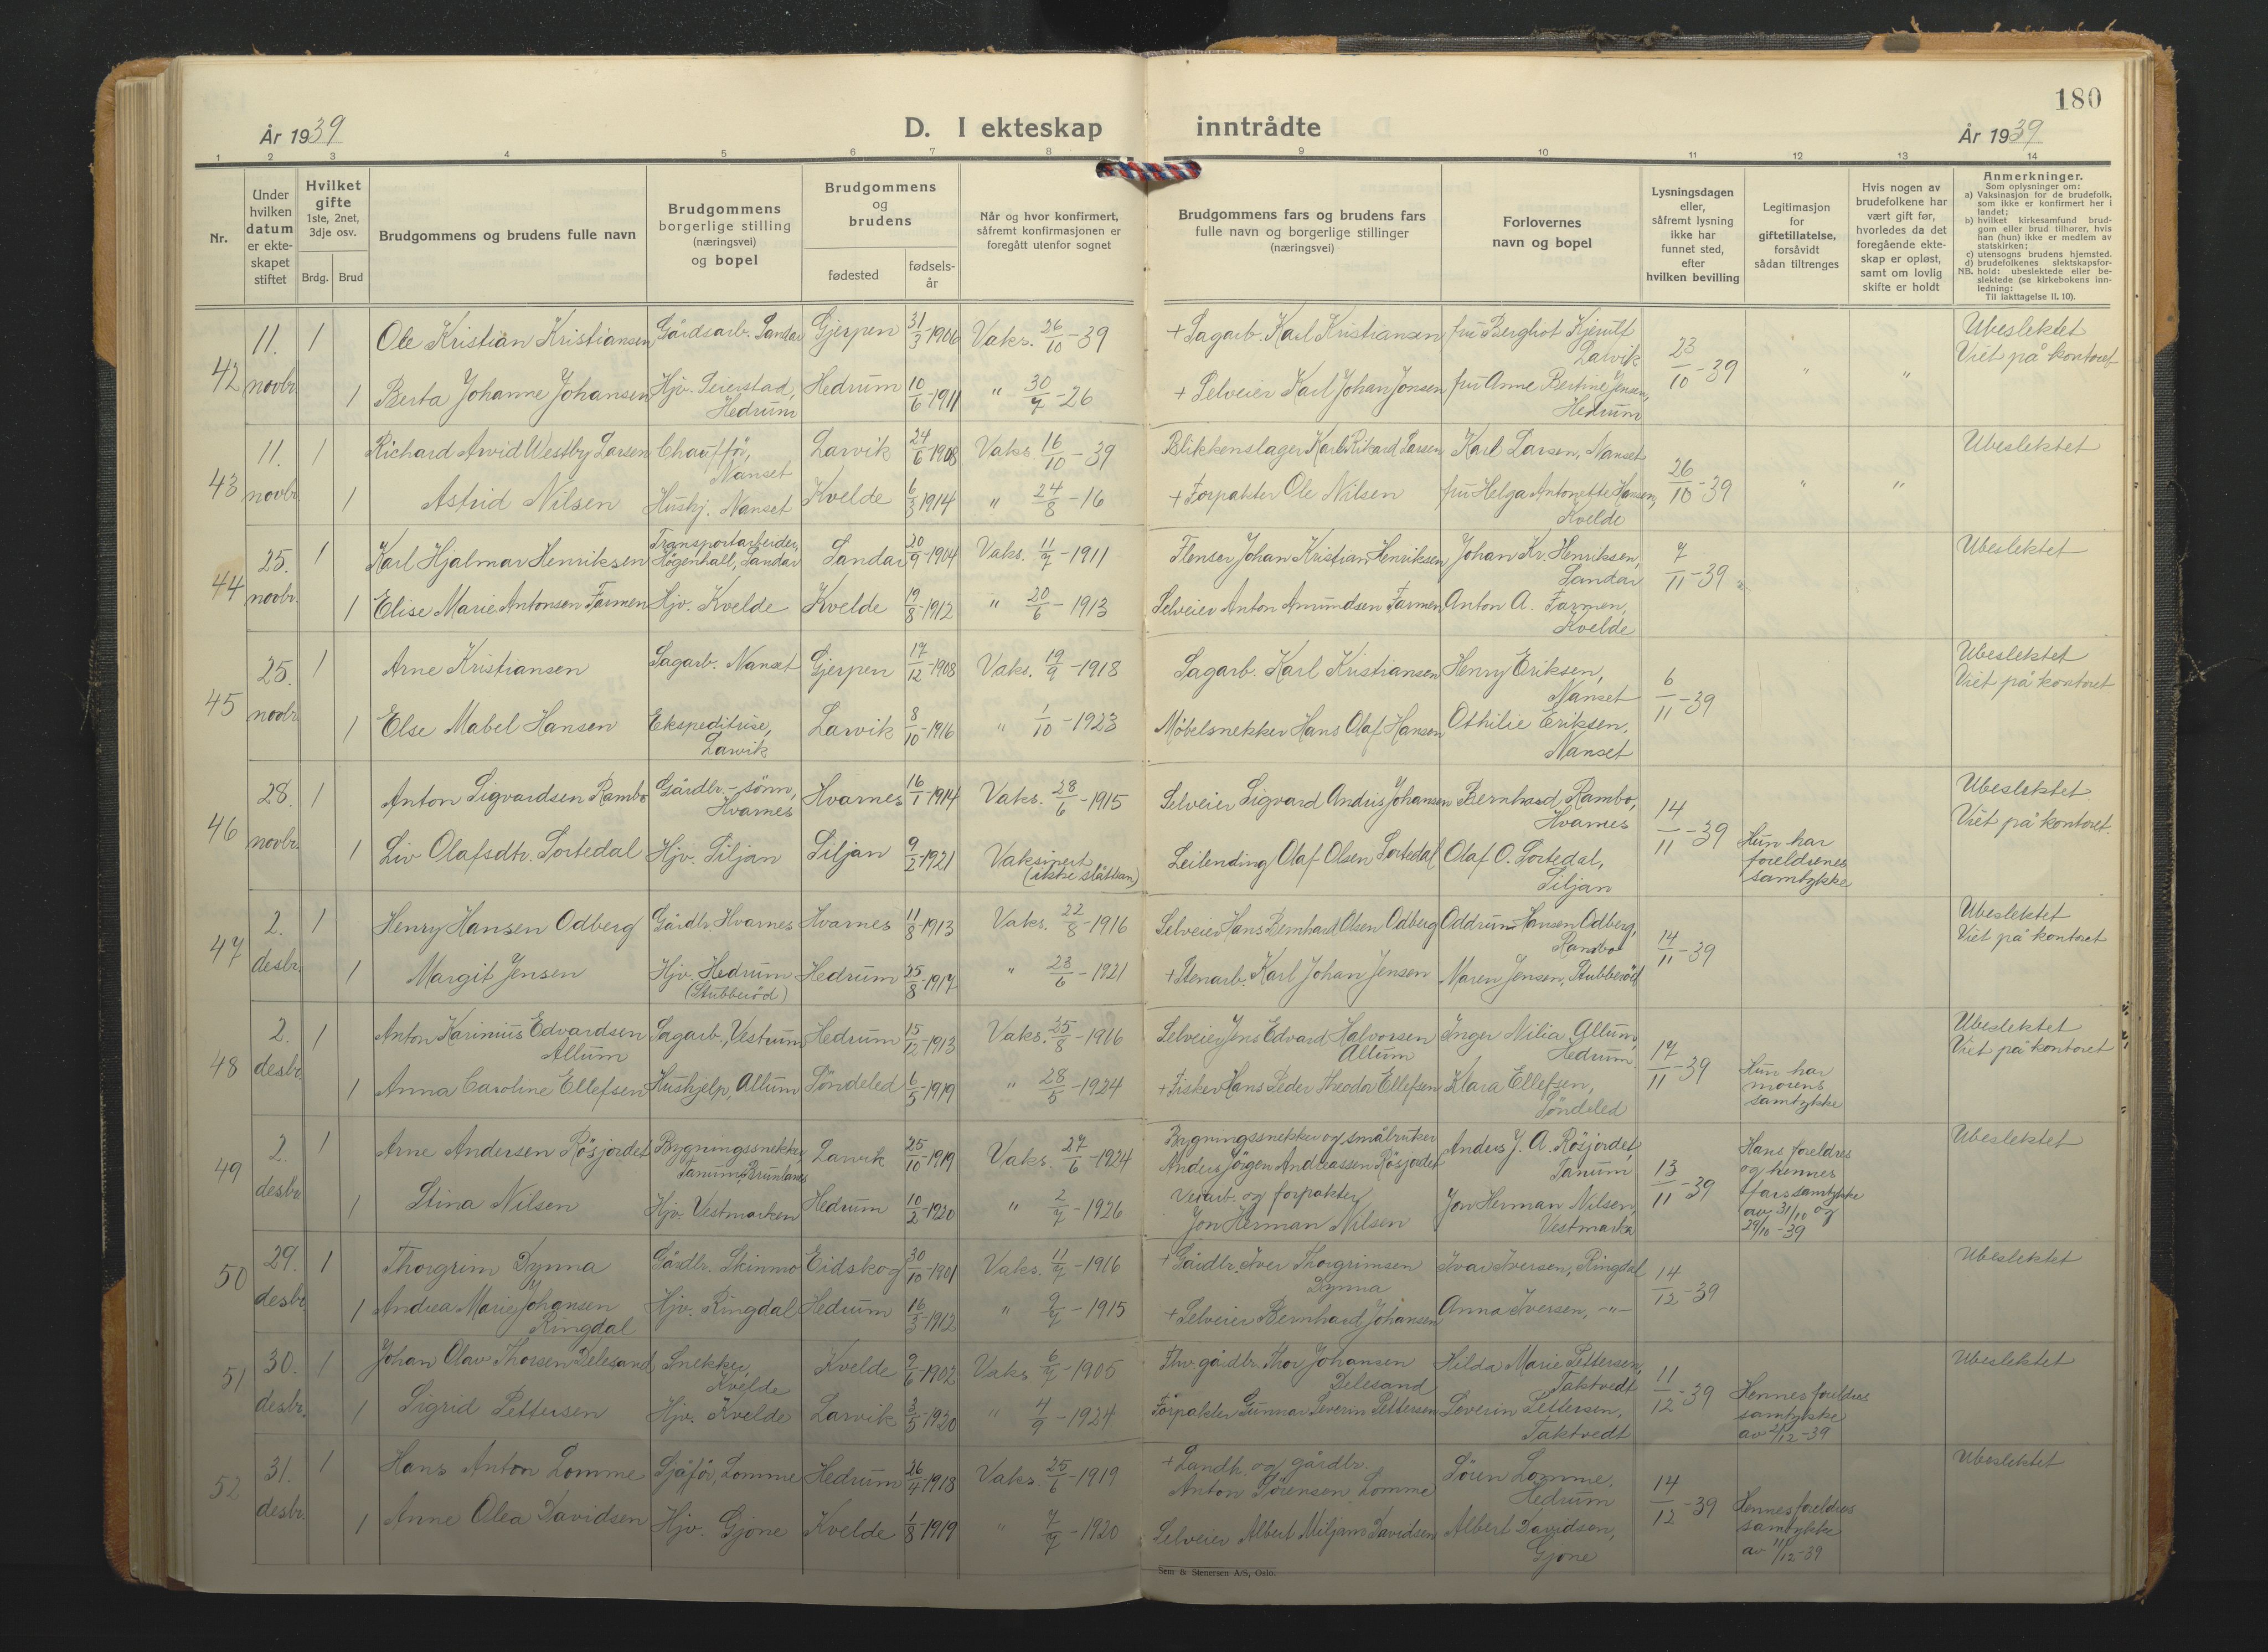 180
År 1939
D. I ekteskap inntrådte
År 1939
1 2 3 4 5 6 7 8 9 10 11 12 13 14
Nr.
Under hvilken datum er ekteskapet stiftet
Hvilket gifte 1ste, 2net, 3dje osv.
Brdg. Brud
Brudgommens og brudens fulle navn
Brudgommens borgerlige stilling (næringsvei) og bopel
Brudgommens og brudens
fødested
fødsels-år
Når og hvor konfirmert, såfremt konfirmasjonen er foregått utenfor sognet
Brudgommens fars og brudens fars fulle navn og borgerlige stillinger (næringsvei)
Forlovernes navn og bopel
Lysningsdagen eller, såfremt lysning ikke har funnet sted, efter hvilken bevilling
Legitimasjon for giftetillatelse, forsåvidt sådan tiltrenges
Hvis nogen av brudefolkene har vært gift før, hvorledes da det foregående ekteskap er opløst, samt om lovlig skifte er holdt
Anmerkninger.
Som oplysninger om:
a) Vaksinasjon for de brudefolk, som ikke er konfirmert her i landet;
b) hvilket kirkesamfund brudgom eller brud tilhører, hvis han (hun) ikke er medlem av statskirken;
c) utensogns brudens hjemsted.
d) brudefolkenes slektskapsforhold: ubeslektede eller beslektede (se kirkebokens innledning:
NB.
Til iakttagelse II, 10).
42 11. novbr. 1 Ole Kristian Kristiansen Gårdsarb. Sandar Gjerpen 31/3-1906 Vaks. 26/10-39 + Sagarb. Karl Kristiansen fru Bergliot Larvik 23/10-39 " " Ubeslektet Viet på kontoret
1 Berta Johanne Johansen Hjv. Hedrum Hedrum 10/6-1911 " 30/7-26 + Selveier Karl Johan Jonsen fru Anne Bertine Jensen, Hedrum
43 11. novbr. 1 Richard Arvid Westby Larsen Chauffør, Nanset Larvik 24/6-1908 Vaks. 16/10-39 Blikkenslager Karl Rikard Larsen Karl Larsen, Nanset 26/10-39 " " Ubeslektet
1 Astrid Nilsen Hushj. Nanset Kvelde 6/3-1914 " 24/8-16 + Forpakter Ole Nilsen fru Helga Antonette Hansen, Kvelde
44 25. novbr. 1 Karl Hjalmar Henriksen Transportarbeider, Högenhall, Sandar Sandar 20/9-1904 Vaks. 11/7-1911 Flenser Johan Kristian Henriksen Johan Kr. Henriksen, Sandar 7/11-39 Ubeslektet
1 Elise Marie Antonsen Farmen Hjv. Kvelde Kvelde 19/8-1912 " 20/6-1913 Selveier Anton Amundsen Farmen Anton A. Farmen, Kvelde
45 25. novbr. 1 Arne Kristiansen Sagarb. Nanset Gjerpen 17/12-1908 Vaks. 19/9-1918 Sagarb. Karl Kristiansen Henry Eriksen, Nanset 6/11-39 Ubeslektet Viet på kontoret
1 Else Mabel Hansen Ekspeditrise, Larvik Larvik 8/10-1916 " 1/10-1923 Möbelsnekker Hans Olaf Hansen Othilie Eriksen, Nanset
46 28. novbr. 1 Anton Sigvardsen Rambo Gårdbr.-sönn, Hvarnes Hvarnes 16/1-1914 Vaks. 28/6-1915 Selveier Sigvard Andris Johansen Bernhard Rambo, Hvarnes 14/11-39 Ubeslektet Viet på kontoret.
1 Liv Olafsdtr. Sortedal Hjv. Siljan Siljan 9/2-1921 Vaksinert (ikke slått an) Leilending Olaf Olsen Sortedal Olaf O. Sortedal, Siljan Hun har foreldrenes samtykke
47 2. desbr. 1 Henry Hansen Odberg Gårdbr. Hvarnes Hvarnes 11/8-1913 Vaks. 22/8-1916 Selveier Hans Bernhard Olsen Odberg Oddrun Hansen Odberg, Rambo 14/11-39 Ubeslektet Viet på kontoret
1 Margit Jensen Hjv. Hedrum (Stubberöd) Hedrum 25/8-1917 " 23/6-1921 + Stenarb. Karl Johan Jensen Maren Jensen, Stubberöd
48 2. desbr. 1 Anton Karinius Edvardsen Allum Sagarb., Vestrum Hedrum 15/12-1913 Vaks. 25/8-1916 Selveier Jens Edvard Halvorsen Allum Inger Nilia Allum, Hedrum 17/11-39 Ubeslektet Viet på kontoret
1 Anna Caroline Ellefsen Hushjelp, Allum Söndeled 6/5-1919 " 28/5-1924 + Fisker Hans Peder Theodor Ellefsen Klara Ellefsen, Söndeled Hun har morens samtykke
49 2. desbr. 1 Arne Andersen Rösjordet Bygningssnekker Tanum, Brunlanes Larvik 25/10-1919 Vaks. 27/6-1924 Bygningssnekker og småbruker Anders Jörgen Andreassen Rösjordet Anders J. A. Rösjordet, Tanum 13/11-39 Hans foreldres og hennes fars samtykke av 31/10 og 29/10-39 Ubeslektet
1 Stina Nilsen Hjv. Vestmarken Hedrum 10/2-1920 " 2/7-1926 Veiarb. og forpakter Jon Herman Nilsen Jon Herman Nilsen, Vestmarka
50 29. desbr. 1 Thorgrim Dynna Gårdbr. Skinmo Eidskog 30/10-1901 Vaks. 11/7-1916 + Gårdbr. Iver Thorgrimsen Dynna Ivar Iversen, Ringdal 14/12-39 Ubeslektet
1 Andrea Marie Johansen Ringdal Hjv. Ringdal Hedrum 16/3-1912 " 9/7-1915 + Selveier Bernhard Johansen Anna Iversen, -"-
51 30. desbr. 1 Johan Olav Thorsen Delesand Snekker, Kvelde Kvelde 9/6-1902 Vaks 6/7-1905 Fhv. gårdbr. Thor Johansen Delesand Hilda Marie Pettersen, Taktvedt 11/12-39 Ubeslektet
1 Sigrid Pettersen Hjv. Kvelde Larvik 3/5-1920 " 4/9-1924 Forpakter Gunnar Severin Pettersen Severin Pettersen, Taktvedt Hennes foreldres samtykke av 2/12-39
52 31. desbr. 1 Hans Anton Lomme Sjåför, Lomme Hedrum 26/4-1918 Vaks. 25/6-1919 + Landh. og gårdbr. Anton Sörensen Lomme Sören Lomme, Hedrum 14/12-39 Ubeslektet
1 Anne Olea Davidsen Hjv. Gjone Kvelde 1/8-1919 " 7/7-1920 Selveier Albert Miljam Davidsen Albert Davidsen, Gjone Hennes foreldres samtykke av 11/12-39
Sem & Stenersen A/S, Oslo.